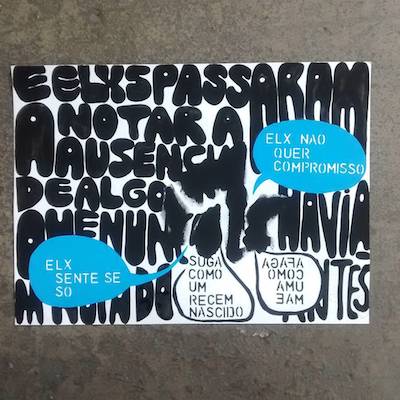 E ELXS PASSARAM
A NOTAR A
AUSENCIA
DE ALGO
QUE NUN
HAVIA
ANTES
ELX NAO
QUER
COMPROMISSO
ELX
SENTE SE
SO
SUGA
COMO
UM
RECEM
NASCIDO
AFAGA
COMO
UMA
MAE